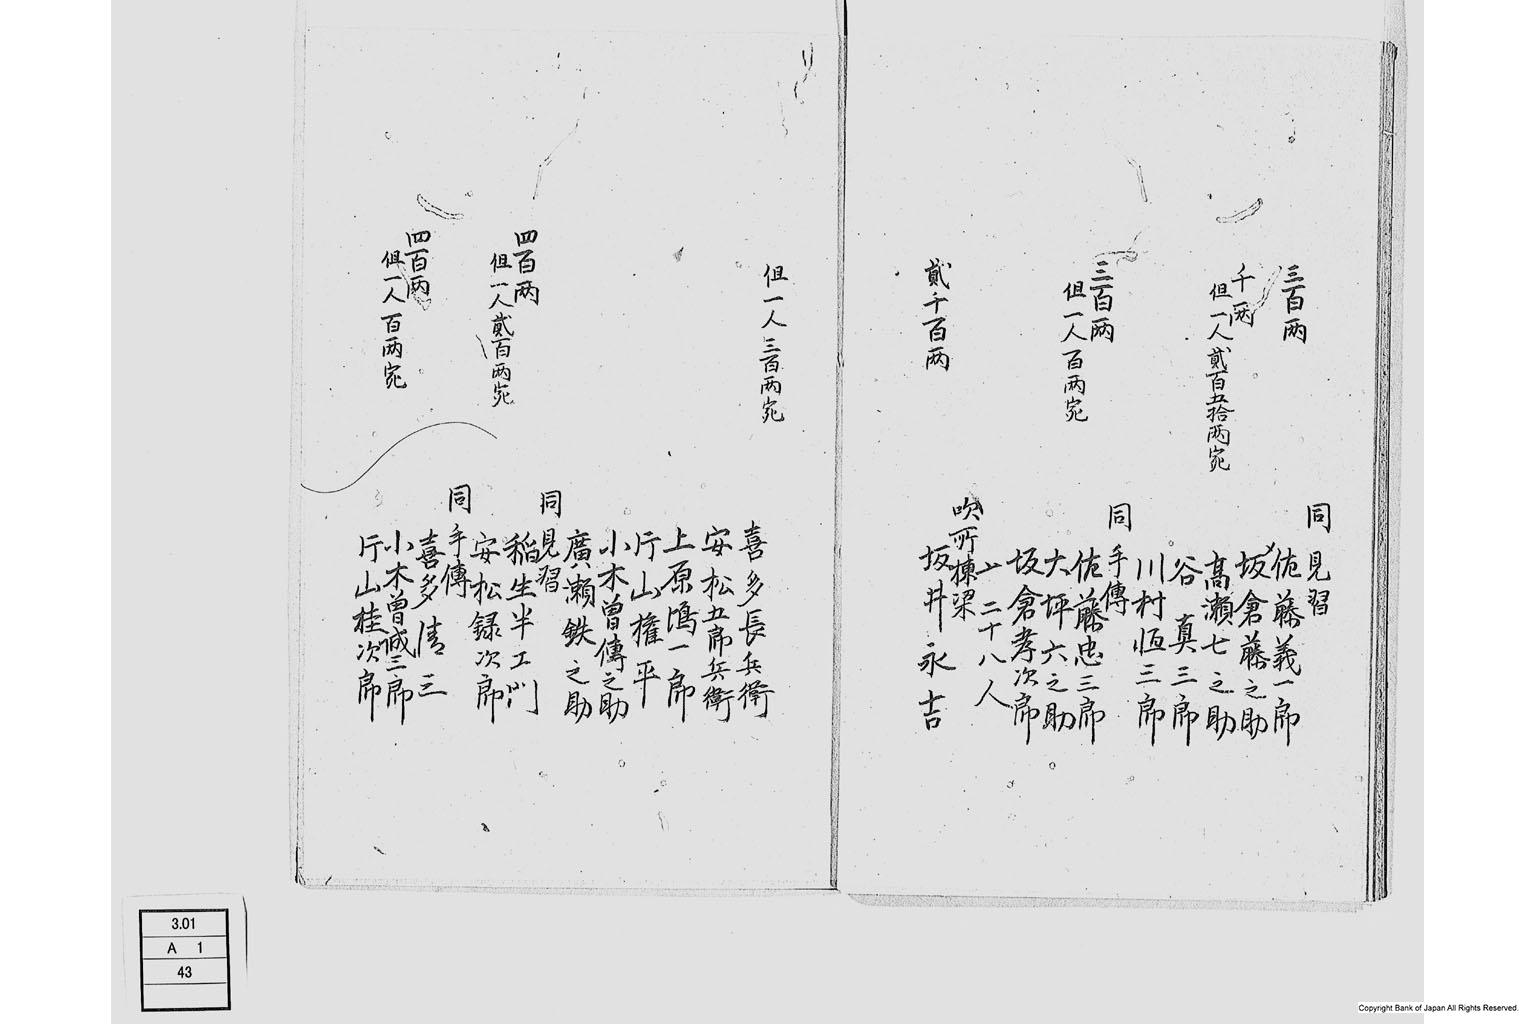 同見習
三百両
佐藤義一郎
千両
坂倉藤之助
但一人貳百五拾両宛
高瀬七之助
谷真三郎
川村恒三郎
同手傳
三百両
佐藤忠三郎
但一人百両宛
大坪六之助
坂倉孝次郎
〆二十八人
吹所棟梁
貳千百両
坂井永吉
但一人三百両宛
喜多長兵衛
安松五郎兵衛
上原鴻一郎
片山権平
小木曽傳之助
廣瀬鉄之助
同見習
四百両
稲生半エ門
但一人貳百両宛
安松録次郎
同手傳
四百両
喜多清三
但一人百両宛
小木曽誠三郎
片山桂次郎
3.01
A 1
43
Copyright Bank of Japan All Rights Reserved.